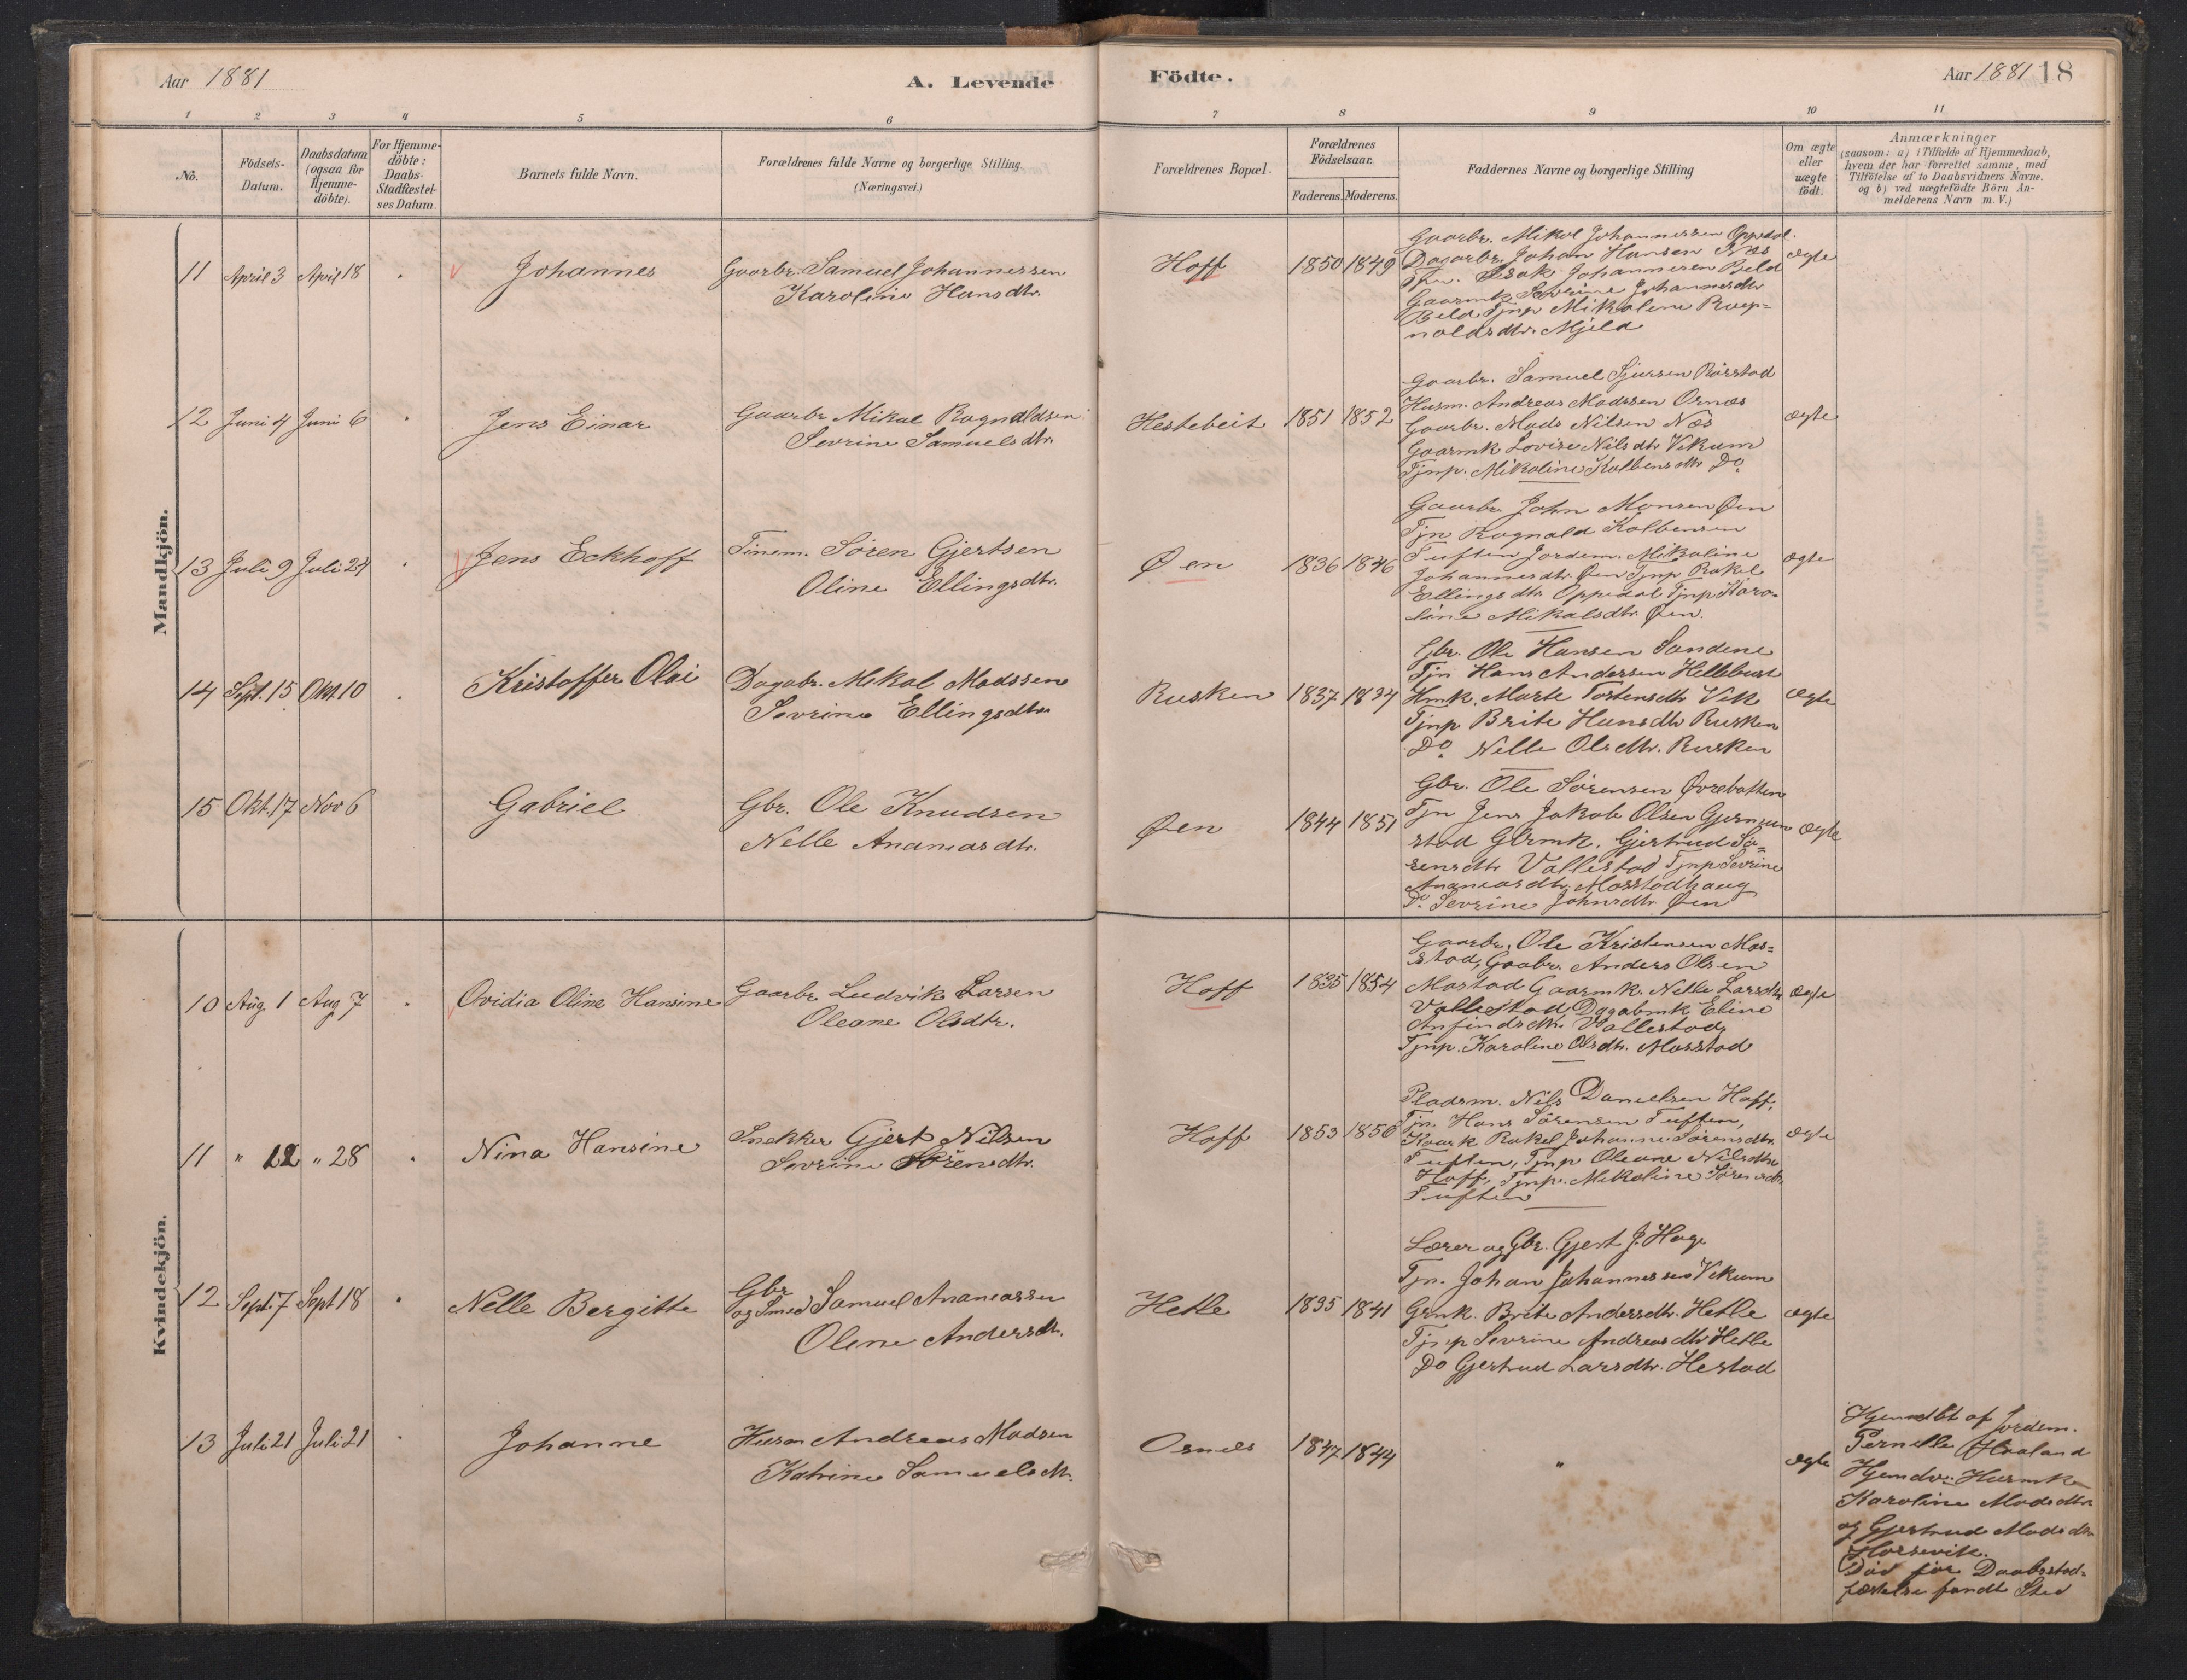 Aar 1881
A. Levende
Födte.
Aar 1881
18
1 2 3 4 5 6 7 8 9 10 11
No.
Födsels-
Datum.
Daabsdatum
(ogsaa for
Hjemme-
döbte).
For Hjemme-
döbte:
Daabs-
Stadfæstel-
ses Datum.
Barnets fulde Navn.
Forældrenes fulde Navne og borgerlige Stilling.
(Næringsvei.)
Forældrenes Bopæl.
Forældrenes
Födselsaar.
Faderens.
Moderens.
Faddernes Navne og borgerlige Stilling
Om ægte
eller
uægte
födt.
Anmærkninger
(saasom: a) i Tilfælde af Hjemmedaab,
hvem der har forrettet samme, med
Tilföielse af to Daabsvidners Navne,
og b) ved uægtefödte Börn An-
melderens Navn m. V.)
Mandkjön.
11 April 3 April 18 Johannes
Gaarbr. Samuel Johannessen
Karoline Hansdtr.
Hoff 1850 1849
Gaarbr. Mikal Johannessen Oppedal.
Dagarbr. Johan Hansen Næs
Tjn. Isak Johannesen Beld
Gaarmk Severine Johannesdtr
Beld Tjnp Mikaline
noldsdtr. Mjeld
ægte
12 Juni 4 Juni 6 Jens Einar
Gaarbr Mikal Ragnaldsen
Sevrine Samuelsdtr.
Hestebeit 1851 1852
Gaarbr. Samuel Sjursen Rørstad
Husm. Andreas Madssen Osnæs
Gaarbr. Mads Nilsen Næs
Gaarmk Lovise Nilsdtr Vikum
Tjnp. Mikaline Kolbensdtr Do
ægte
13 Juli 9 Juli 24 Jens Eckhoff
Tinem. Søren Gjertsen
Oline Ellingsdtr.
Øen 1836 1846
Gaarbr John Monsen Øen
Tjn Ragnald Kolbensen
Tuften Jordem. Mikaline
Johannesdtr. Øen Tjnp Rakel
Ellingsdtr Oppedal Tjnp Karo-
line Mikalsdtr. Øen.
ægte
14 Sept. 15 Okt. 10 Kristoffer Olai
Dagabr. Mikal Madssen
Sevrine Ellingsdtr
Rusken 1837 1834
Gbr. Ole Hansen Sandene
Tjn Hans Andersen Hellebust
Hmk. Marte Tostensdtr Vik
Tjnp Brite Hansdtr Rusken
Do. Nelle Olsdtr. Rusken
ægte
15 Okt. 17 Nov 6 Gabriel
Gbr. Ole Knudsen
Nelle Ananiasdtr.
Øen 1844 1851
Gbr. Ole Sørensen Øvrebotten
Tjn Jens Jakob Olsen Gjernun
stad Gbrmk. Gjertrud Sø-
rensdtr Vallestad Tjnp Sevrine
Ananiasdtr. Masstadhaug
Do. Sevrine Johnsdtr. Øen
ægte
Kvindekjön.
10 Aug 1 Aug 7 Ovidia Oline Hansine
Gaarbr Ludvik Larsen
Oleane Olsdtr.
Hoff 1835 1854
Gaarbr. Ole Kristensen Mas-
stad, Gaabr. Anders Olsen
Mastad Gaarmk. Nelle Larsdtr
Vallestad, Dagabmk Eline
Anfindsdtr. Vallestad,
Tjnp. Karoline Olsdtr. Masstad
ægte
11 " 12 " 28 Nina Hansine
Snekker Gjert Nilsen
Sevrine Sørensdtr.
Hoff 1853 1856
Pladsm. Nils Danielsen Hoff,
Tjn. Hans Sørensen Tuften,
Rakel Johanne Sørensdtr.
Tuften, Tjnp Oleane Nilsdtr
Hoff, Tjnp. Mikaline Sørensdtr.
Tuften
ægte
12 Sept. 7 Sept 18 Nelle Bergitte
Gbr
og Smed Samuel Ananiassen
Olene Andersdtr.
Hetle 1835 1841
Lærer og Gbr. Gjert J. Hage
Tjn. Johan Johannessen Vikum
Grmk. Brite Andersdtr. Hetle
Tjnp Sevrine Andreasdtr Hetle
Do Gjertrud Larsdtr. Hestad
ægte
13 Juli 21 Juli 21 Johanne
Husm Andreas Madsen
Katrine Samuelsdtr.
Osnæs 1847 1844
"
ægte
Hjemdbt af Jordem.
Pernille Haaland
Hjemdv: Husmk
Karoline Madsdtr
og Gjertrud Madsdtr
Horsevik.
Død før Daabsstad-
fæstelse fandt Sted